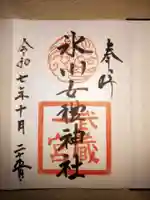 奉拝
武蔵一宮
氷川女體神社
令和七年十月二十五日